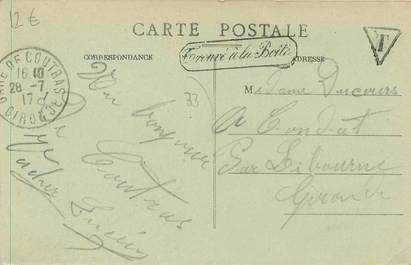 12 €
CARTE POSTALE
CORRESPONDANCE
ADRESSE
Trouvé à la Boîte
T
GARE DE COUTRAS
16 40
28-7
17
GIRONDE
33
Un bonjour
de Coutras
Lucien
Madame Ducours
A Condat
Par Libourne
Gironde